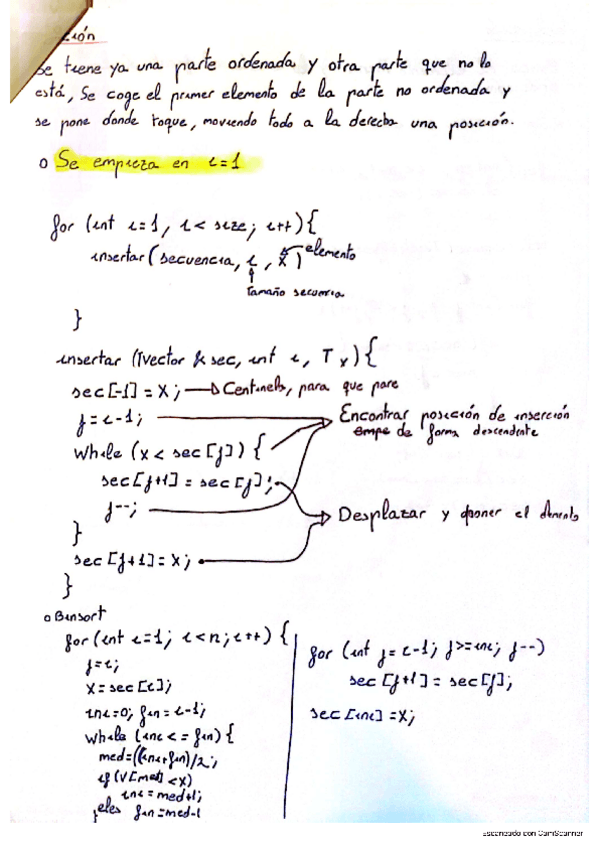 ción
Se tiene ya una parte ordenada y otra parte que no lo
está, Se coge el primer elemento de la parte no ordenada y
se pone donde toque, moviendo todo a la derecha una posición.
o Se empieza en i=1
for (int i=1, i< size; i++){
insertar (secuencia, i, x) elemento
tamaño secuencia
}
insertar (Tvector & sec, int i, T x){
sec[-1] = x; → Centinela, para que pare
j=i-1; → Encontrar posición de inserción
empe de forma descendente
while (x < sec[j]) {
sec[j+1] = sec[j];
j--; → Desplazar y poner el elemento
}
sec[j+1]=x;
}
o Binsort
for (int i=1; i<n; i++) {
j=i;
x=sec[i];
ini=0; fin=i-1;
while (ini <= fin) {
med=((ini+fin)/2;
if (V[med] <x)
ini=med+1;
eles fin=med-1
for (int j=i-1; j>=ini; j--)
sec[j+1] = sec[j];
sec[ini]=x;
Escaneado con CamScanner